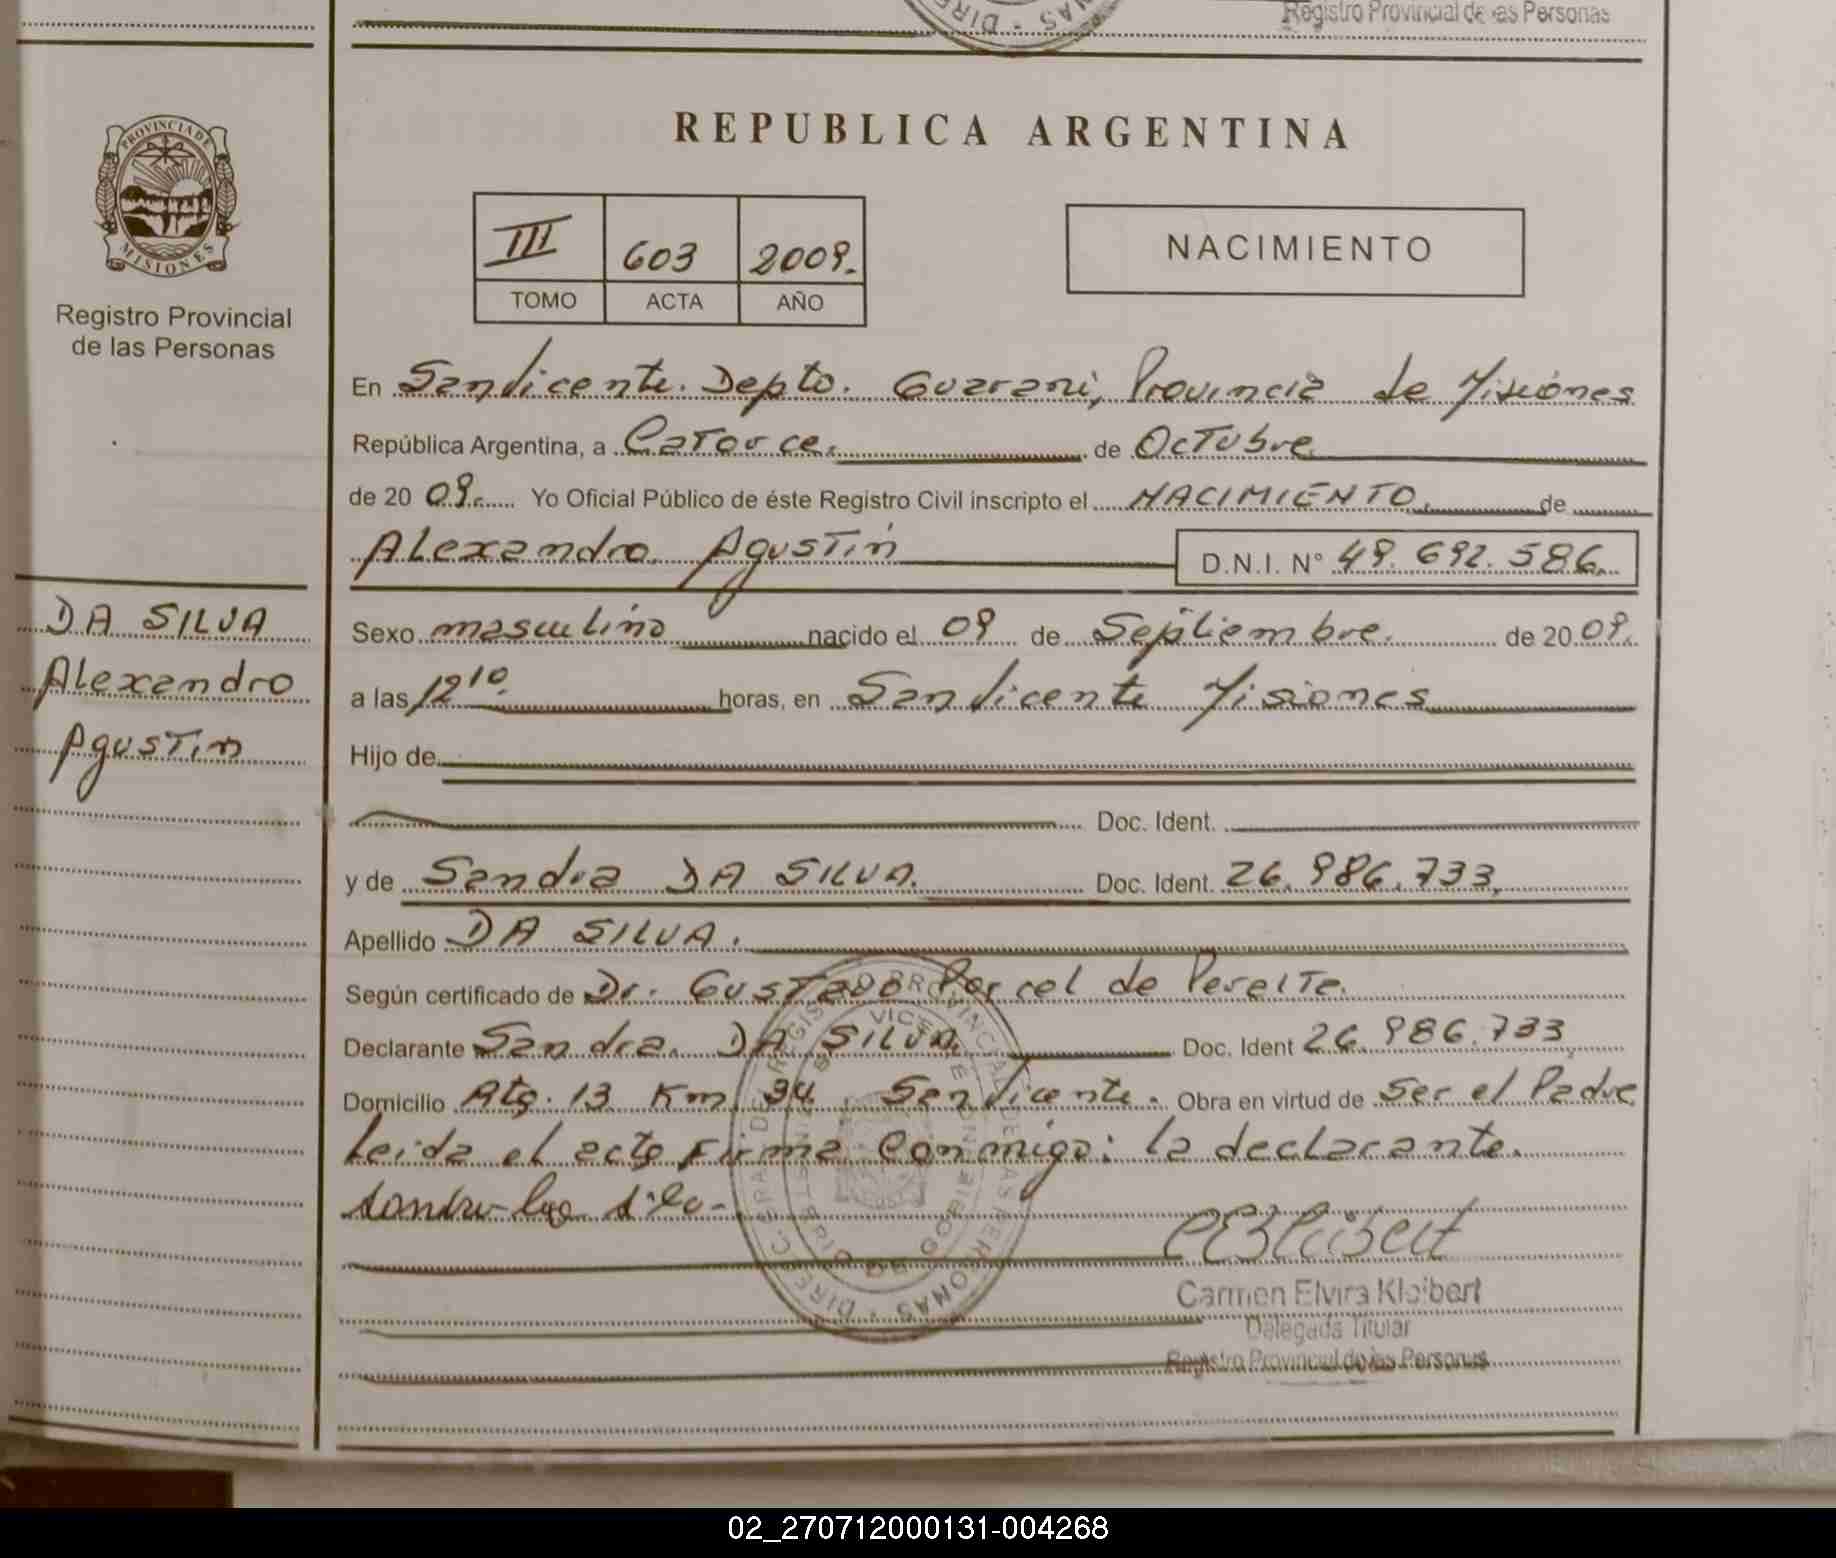 Registro Provincial de las Personas
REPUBLICA ARGENTINA
PROVINCIA DE
MISIONES
Registro Provincial
de las Personas
III 603 2009.
TOMO ACTA AÑO
NACIMIENTO
En San Vicente. Depto. Guarani, Provincia de Misiones
República Argentina, a Catorce. de Octubre
de 20 09. Yo Oficial Público de éste Registro Civil inscripto el NACIMIENTO. de
Alexandro Agustin D.N.I. N° 49.692.586.
DA SILVA
Alexandro
Agustin
Sexo masculino nacido el 09 de Septiembre. de 20 09.
a las 12 10. horas, en San Vicente Misiones
Hijo de
Doc. Ident.
y de Sandra DA SILVA. Doc. Ident. 26.986.733.
Apellido DA SILVA.
Según certificado de Dr. Gustavo Porcel de Peralta.
Declarante Sandra DA SILVA. Doc. Ident 26.986.733
Domicilio Km 34 San Vicente. Obra en virtud de Ser el Padre
Leida el acta Firma Conmigo: la declarante.
Carmen Elvira Kleibert
Delegada Titular
Registro Provincial de las Personas
02_270712000131-004268